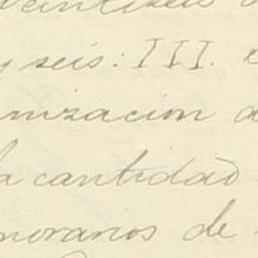 veintiseis
y seis: III.
nizacion
la cantidad
norarios de